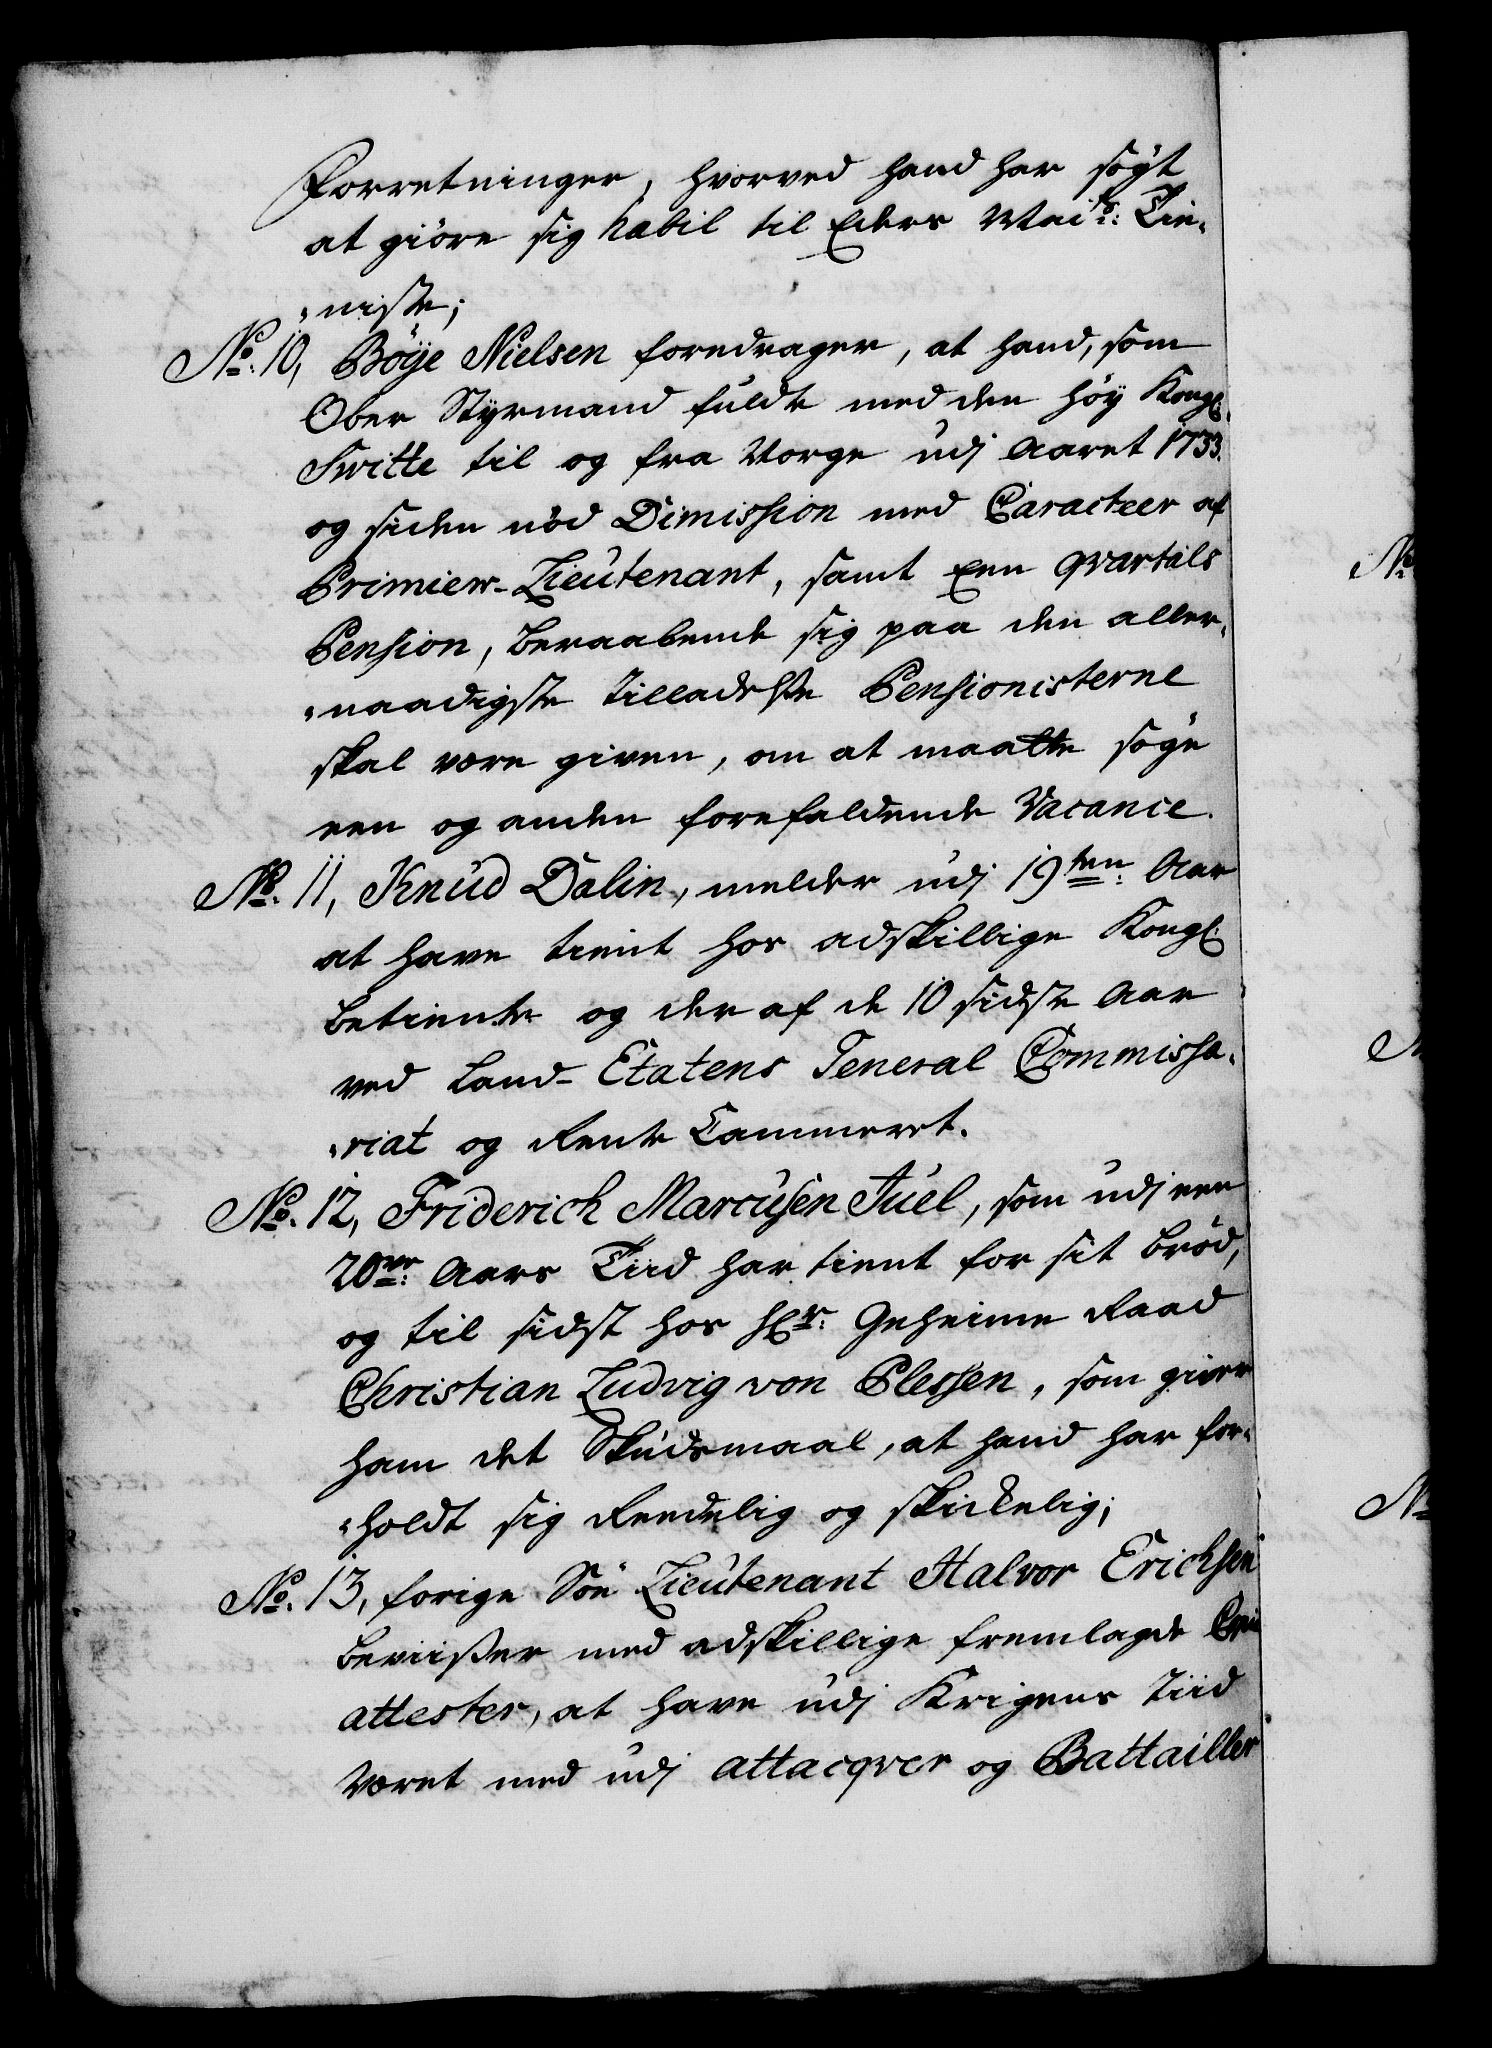 Forretninger, hvorved hand har søgt
at giöre sig habil til Eders Mai:ts: Tie-
-niste;
No: 10, Böye Nielsen foredrager, at hand, som
Ober Styrmand fuldte med den høy Kongl:
Switte til og fra Norge udj Aaret 1733.
og siden nöd Dimission med Caracteer af
Primier-Lieutenant, samt Een qvartals
Pension, beraabende sig paa den aller-
-naadigste tilladelse Pensionisterne
skal være given, om at maatte söge
een og anden forefaldende Vacance.
No: 11, Knud Dalin, melder udj 19ten: Aar
at have tient hos adskillige Kongl:
betiente og der af de 10 sidste Aar
ved Land-Etatens General Commissa-
-riat og Rente Cammeret.
No: 12, Friderich Marcusen Juel, som udj een
20ve: Aars Tiid har tient for sit bröd,
og til sidst hos Hr: Geheime Raad
Christian Ludvig von Plessen, som giver
ham det Skudsmaal, at hand har for-
-holdt sig Reedelig og skickelig;
No: 13, forige Söe Lieutenant Halvor Erichsen
beviißer med adskillige fremlagde
attester, at have udj Krigens tiid
været med udj attacqver og Battailler
No
No
No